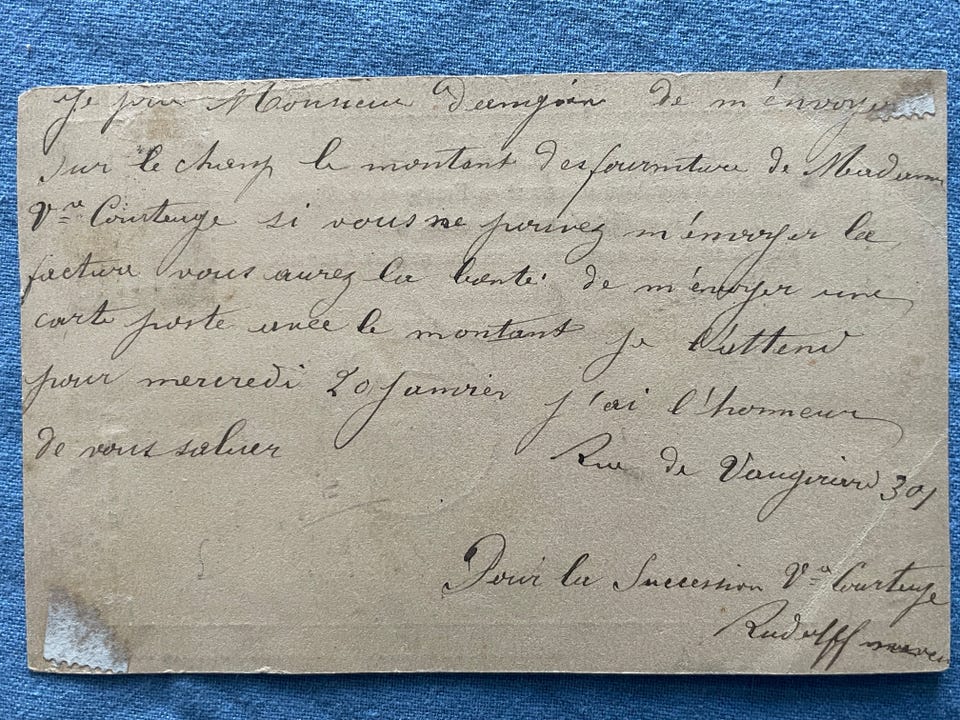 Je prie Monsieur Damgoin de m'envoyer
sur le champ le montant des fourniture de Madame
Vve Courteuge si vous ne pouvez m'envoyer la
facture vous aurez la bonté de m'envoyer une
carte poste avec le montant je l'attend
pour mercredi 20 janvier j'ai l'honneur
de vous saluer
Rue de Vaugirard 301
Pour la Succession Vve Courteuge
Rudolff